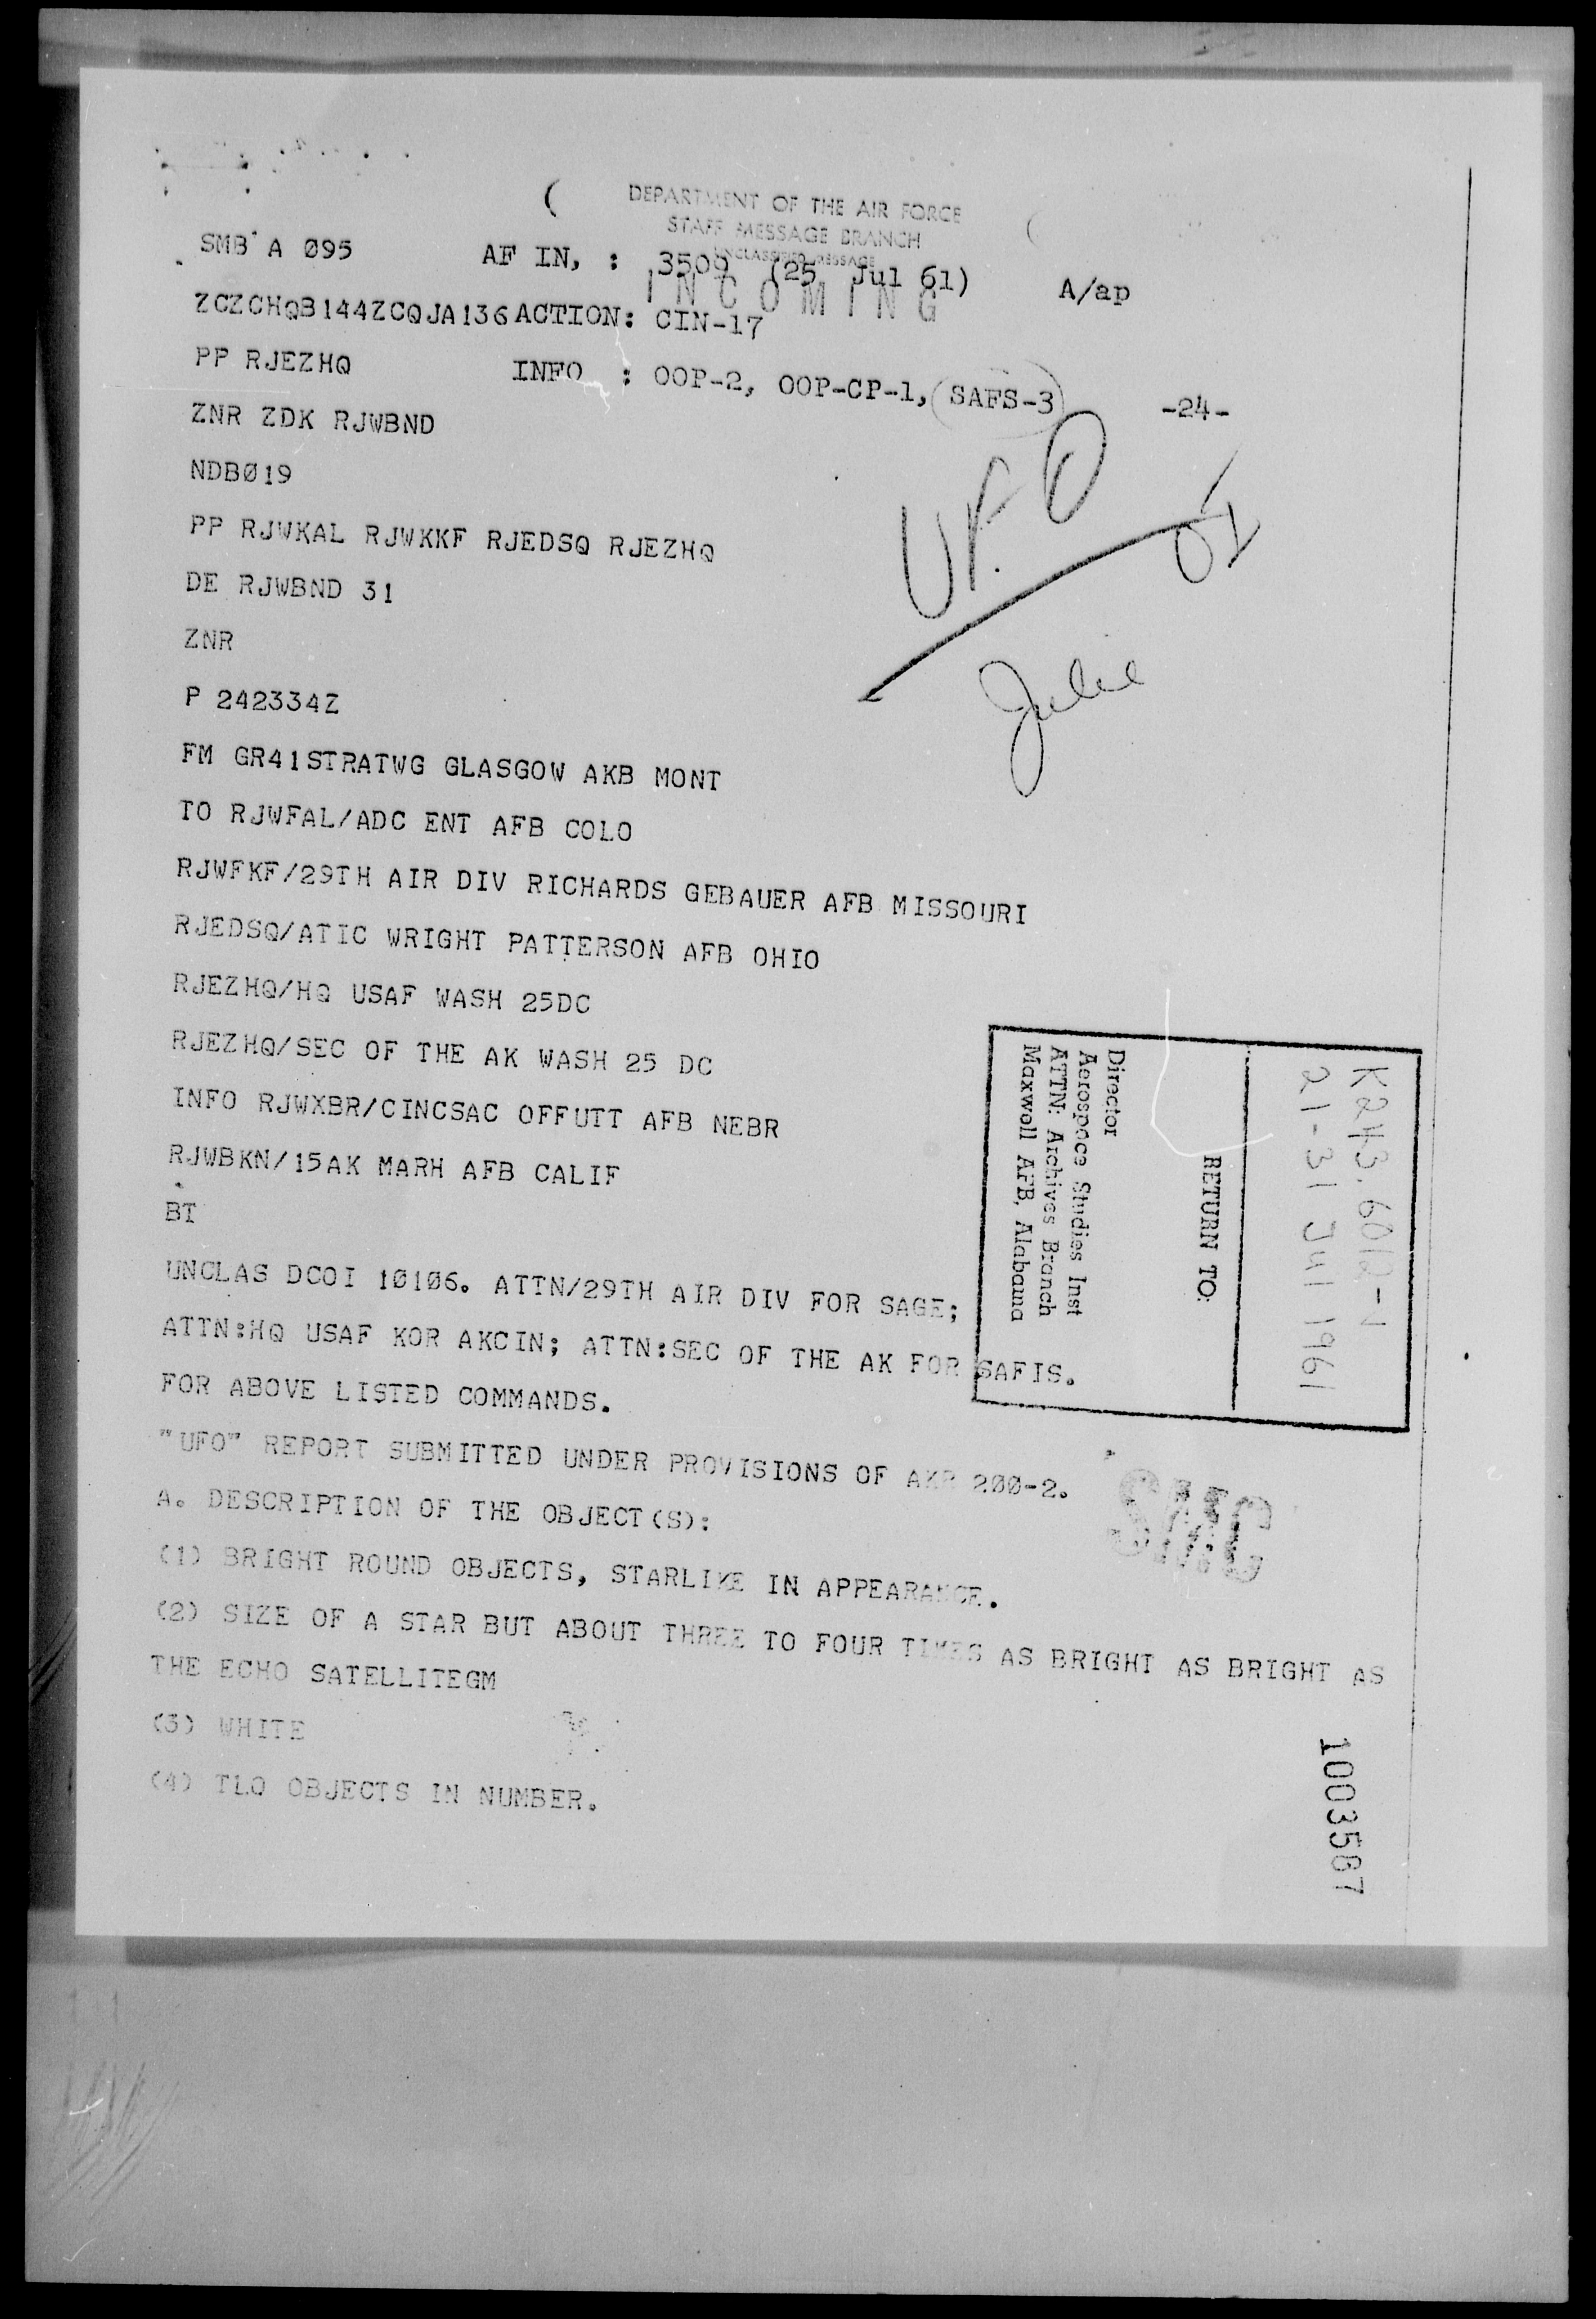 DEPARTMENT OF THE AIR FORCE
STAFF MESSAGE BRANCH
UNCLASSIFIED MESSAGE
INCOMING
SMB A Ø95 AF IN, : 3509 (25 Jul 61) A/ap
ZCZCHQB144ZCQJA136 ACTION: CIN-17
PP RJEZHQ INFO : OOP-2, OOP-CP-1, SAFS-3 -24-
ZNR ZDK RJWBND
NDBØ19
UFO
PP RJWKAL RJWKKF RJEDSQ RJEZHQ
DE RJWBND 31
ZNR
Julie
P 242334Z
FM GR41STRATWG GLASGOW AKB MONT
TO RJWFAL/ADC ENT AFB COLO
RJWFKF/29TH AIR DIV RICHARDS GEBAUER AFB MISSOURI
RJEDSQ/ATIC WRIGHT PATTERSON AFB OHIO
RJEZHQ/HQ USAF WASH 25DC
RJEZHQ/SEC OF THE AK WASH 25 DC
INFO RJWXBR/CINCSAC OFFUTT AFB NEBR
RJWBKN/15AK MARH AFB CALIF
BT
UNCLAS DCOI 1Ø1Ø6. ATTN/29TH AIR DIV FOR SAGE;
ATTN:HQ USAF KOR AKCIN; ATTN:SEC OF THE AK FOR SAFIS.
FOR ABOVE LISTED COMMANDS.
"UFO" REPORT SUBMITTED UNDER PROVISIONS OF AKR 2ØØ-2.
A. DESCRIPTION OF THE OBJECT(S):
(1) BRIGHT ROUND OBJECTS, STARLIKE IN APPEARANCE.
(2) SIZE OF A STAR BUT ABOUT THREE TO FOUR TIMES AS BRIGHT AS BRIGHT AS
THE ECHO SATELLITEGM
(3) WHITE
(4) TLO OBJECTS IN NUMBER.
K243.6012-1
21-31 Jul 1961
RETURN TO:
Director
Aerospace Studies Inst
ATTN: Archives Branch
Maxwell AFB, Alabama
SMC
1003567